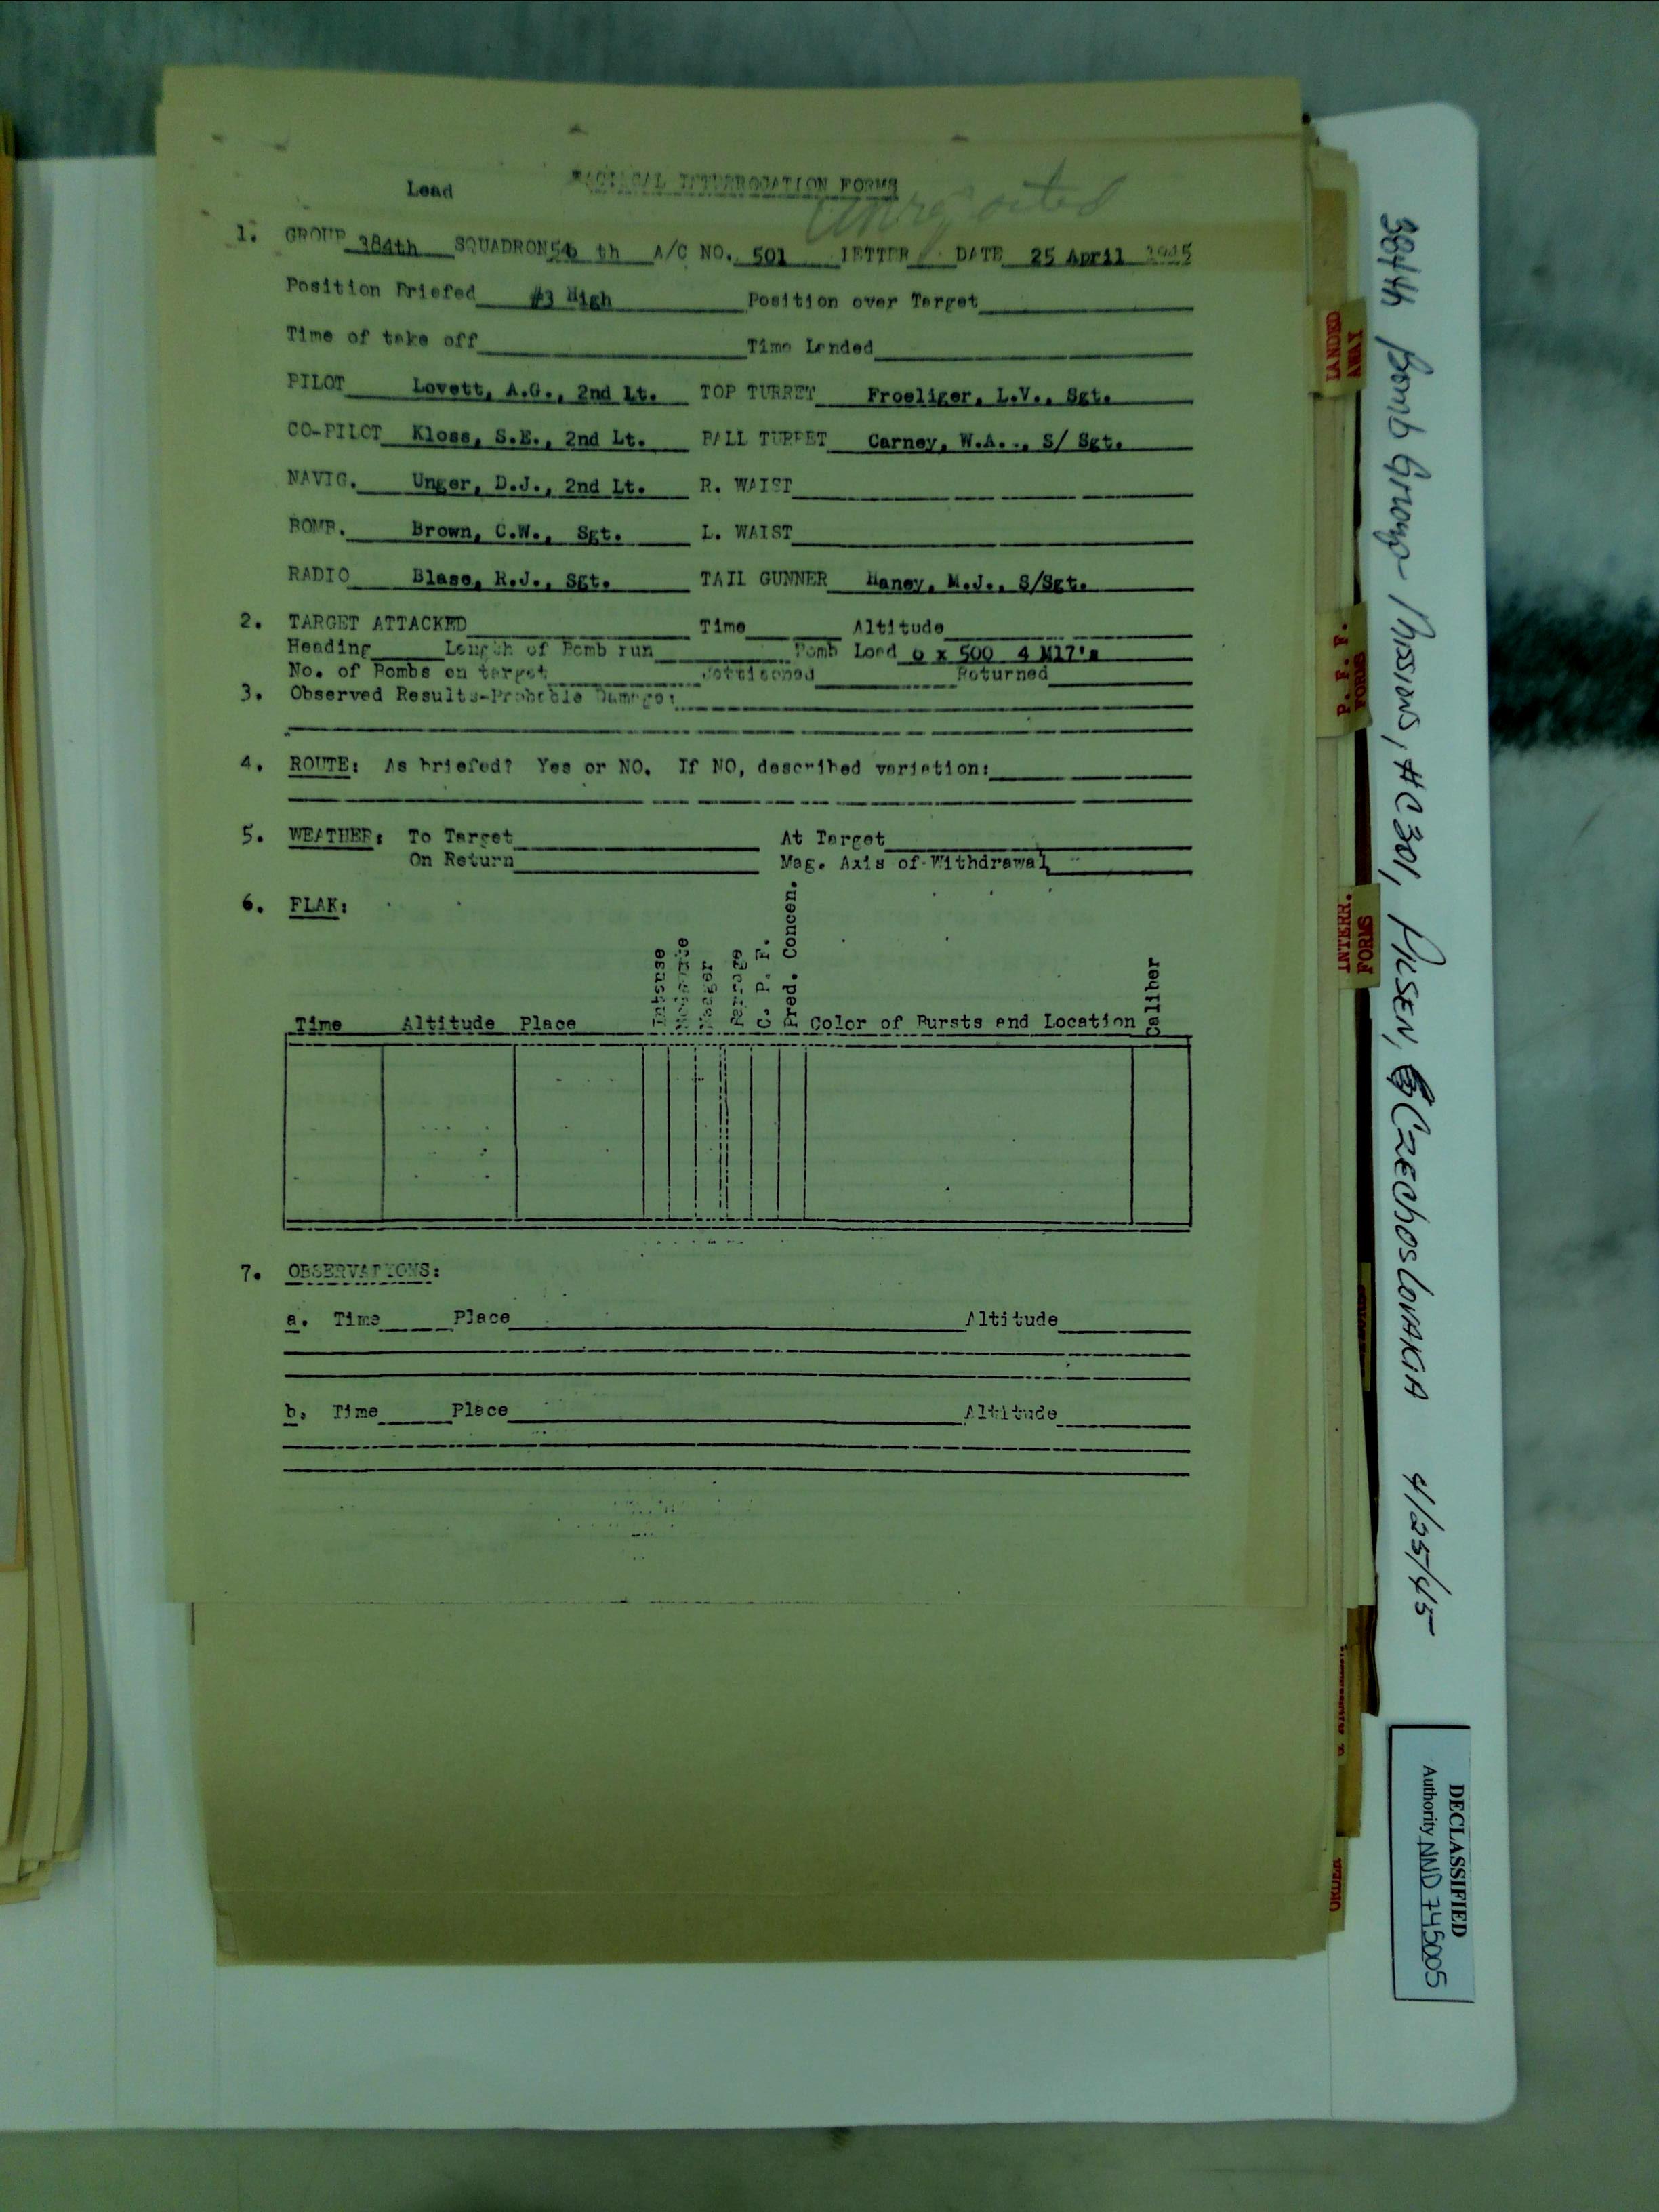 Lead TACTICAL INTERROGATION FORMS
1. GROUP 384th SQUADRON th A/C NO. 501 LETTER DATE 25 April 1945
Position Briefed #3 High Position over Target
Time of take off Time Landed
PILOT Lovett, A.G., 2nd Lt. TOP TURRET Froeliger, L.V., Sgt.
CO-PILOT Kloss, S.E., 2nd Lt. BALL TURRET Carney, W.A., S/ Sgt.
NAVIG. Unger, D.J., 2nd Lt. R. WAIST
BOMB. Brown, C.W., Sgt. L. WAIST
RADIO Blase, R.J., Sgt. TAIL GUNNER Haney, M.J., S/Sgt.
2. TARGET ATTACKED Time Altitude
Heading Length of Bomb run Bomb Load x 500 4 M17's
No. of Bombs on target Jettisoned Returned
3. Observed Results-Probable Damage:
4. ROUTE: As briefed? Yes or NO. If NO, described variation:
5. WEATHER: To Target At Target
On Return Mag. Axis of Withdrawal
6. FLAK:
Time Altitude Place Intense Moderate Meager Barrage C. P. F. Pred. Concen. Color of Bursts and Location Caliber
7. OBSERVATIONS:
a. Time Place Altitude
b. Time Place Altitude
LANDED
AWAY
P. F. F.
FORMS
INTERR.
FORMS
ORDER
384th Bomb Group- Missions, #C301, Pilsen, Czechoslovakia 4/25/45
DECLASSIFIED
Authority NND 745005